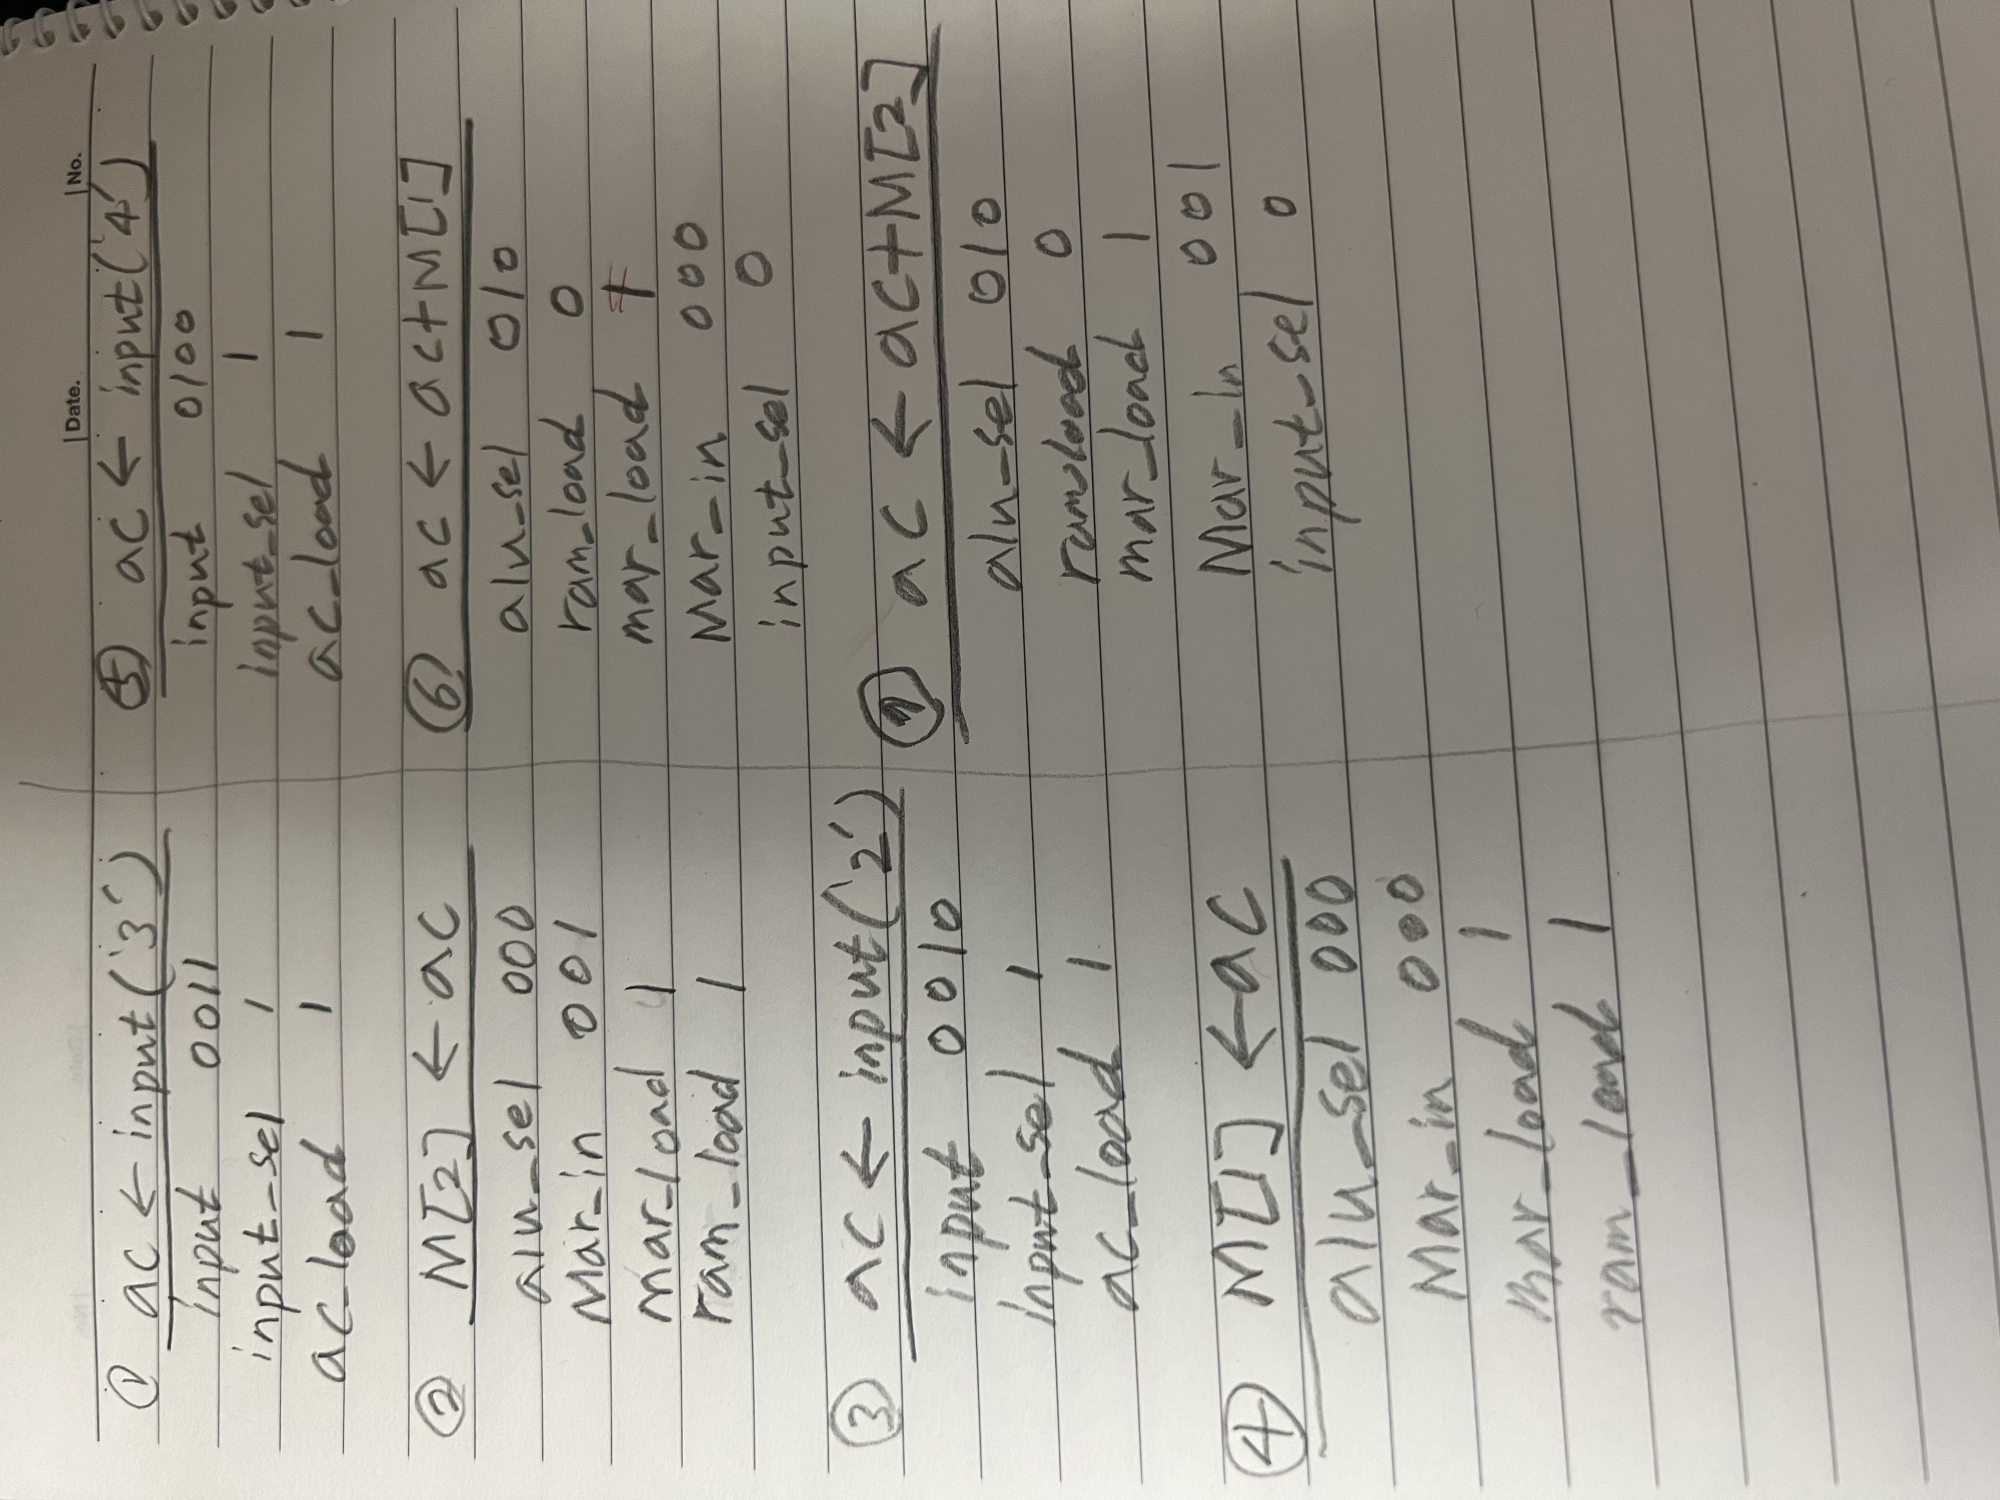 Date. No.
① ac ← input('3')
input 0011
input_sel 1
ac_load 1
② M[2] ← ac
alu_sel 000
Mar_in 001
mar_load 1
ram_load 1
③ ac ← input('2')
input 0010
input_sel 1
ac_load 1
④ M[1] ← ac
alu_sel 000
Mar_in 000
mar_load 1
ram_load 1
⑤ ac ← input('4')
input 0100
input_sel 1
ac_load 1
⑥ ac ← ac+M[1]
alu_sel 010
ram_load 0
mar_load 1
Mar_in 000
input_sel 0
⑦ ac ← ac+M[2]
alu_sel 010
ram_load 0
mar_load 1
Mar_in 001
input_sel 0